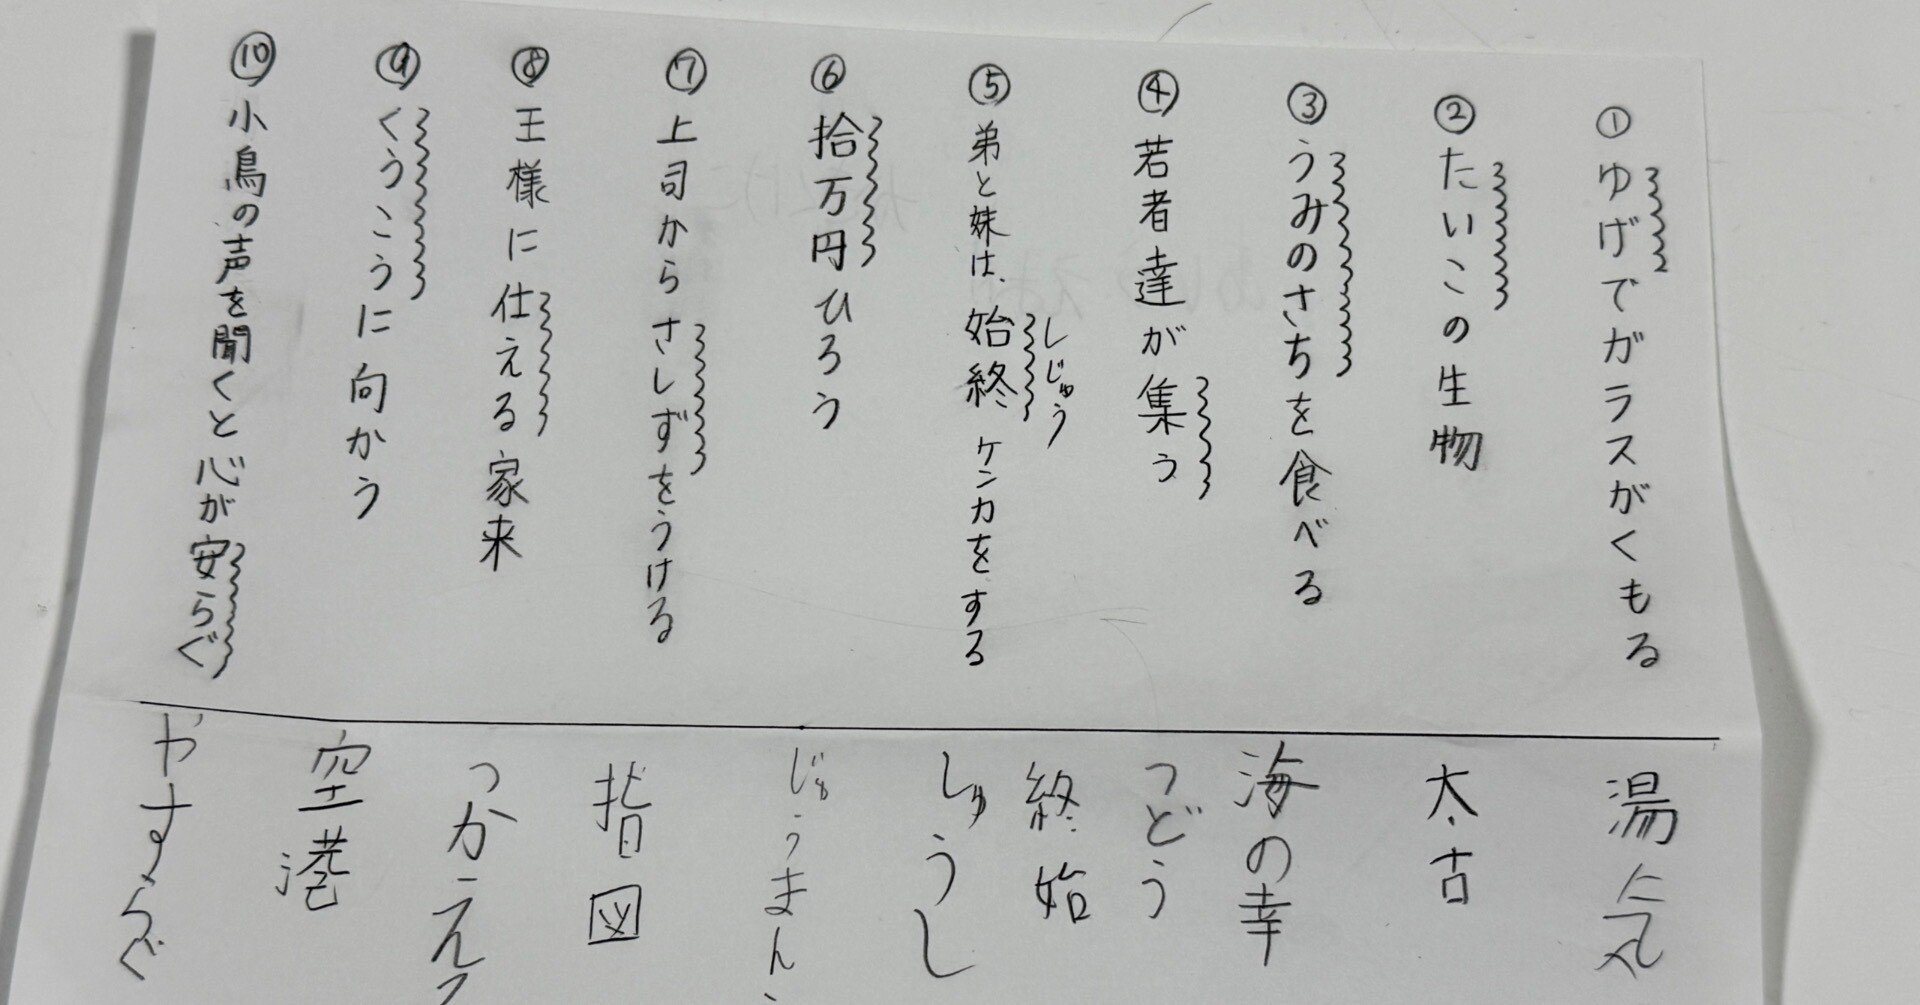 ① ゆげでガラスがくもる
② たいこの生物
③ うみのさちを食べる
④ 若者達が集う
⑤ 弟と妹は、始終ケンカをする
しじゅう
⑥ 拾万円ひろう
⑦ 上司からさしずをうける
⑧ 王様に仕える家来
⑨ くうこうに向かう
⑩ 小鳥の声を聞くと心が安らぐ
湯気
太古
海の幸
つどう
終始
しゅうし
じゅうまん
指図
つかえ
空港
やすらぐ